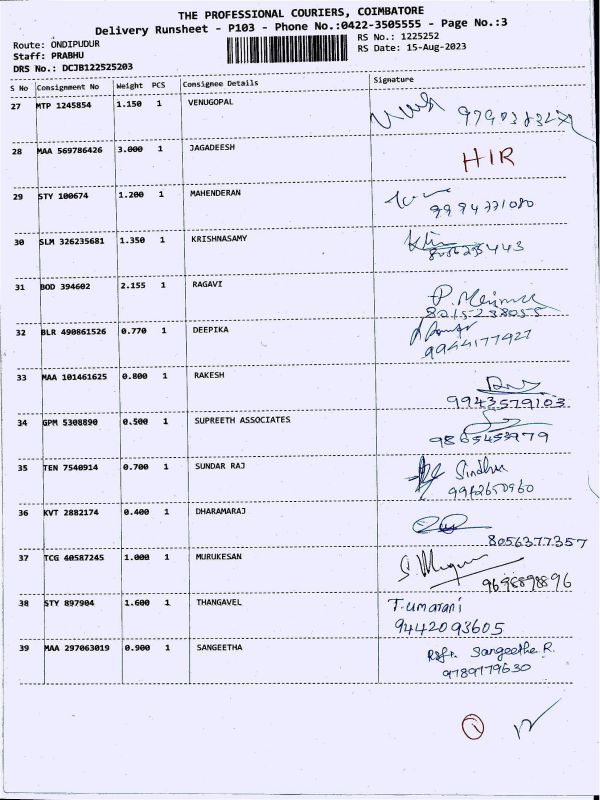 THE PROFESSIONAL COURIERS, COIMBATORE
Delivery Runsheet - P103 - Phone No.:0422-3505555 - Page No.:3
Route: ONDIPUDUR RS No.: 1225252
Staff: PRABHU RS Date: 15-Aug-2023
DRS No.: DCJB122525203
S No Consignment No Weight PCS Consignee Details Signature
27 MTP 1245854 1.150 1 VENUGOPAL
28 MAA 569786426 3.000 1 JAGADEESH HIR
29 STY 100674 1.200 1 MAHENDERAN
9994771080
30 SLM 326235681 1.350 1 KRISHNASAMY
31 BOD 394602 2.155 1 RAGAVI
8015238055
32 BLR 490861526 0.770 1 DEEPIKA
9944177427
33 MAA 101461625 0.800 1 RAKESH
9943579103
34 GPM 5308890 0.500 1 SUPREETH ASSOCIATES
9865453979
35 TEN 7540914 0.700 1 SUNDAR RAJ Sindhu
9942650960
36 KVT 2882174 0.400 1 DHARAMARAJ
8056377357
37 TCG 40587245 1.000 1 MURUKESAN
9698898896
38 STY 897904 1.600 1 THANGAVEL T.umarani
9442093605
39 MAA 297063019 0.900 1 SANGEETHA Sangeetha R.
9789779630
1